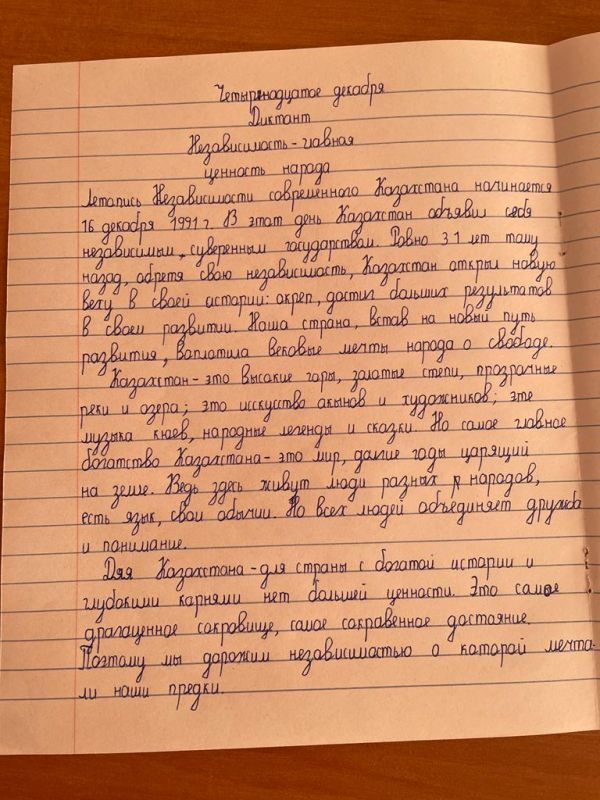 Четырнадцатое декабря
Диктант
Независимость - главная
ценность народа
Летопись Независимости современного Казахстана начинается
16 декабря 1991 г. В этот день Казахстан объявил себя
независимым, суверенным государством. Ровно 31 лет тому
назад, обретя свою независимость, Казахстан открыл новую
веху в своей истории: окреп, достиг больших результатов
в своем развитии. Наша страна, встав на новый путь
развития, воплотила вековые мечты народа о свободе.
Казахстан - это высокие горы, золотые степи, прозрачные
реки и озера; это исскуство акынов и художников; эте
музыка кюев, народные легенды и сказки. Но самое главное
богатство Казахстана - это мир, долгие годы царящий
на земле. Ведь здесь живут люди разных народов,
есть язык, свои обычии. Но всех людей объединяет дружба
и понимание.
Для Казахстана - для страны с богатой истории и
глубокими карнями нет большей ценности. Это самое
драгаценное сокровище, самое сокравенное достояние.
Поэтому мы дорожим независимостью о которой мечта-
ли наши предки.